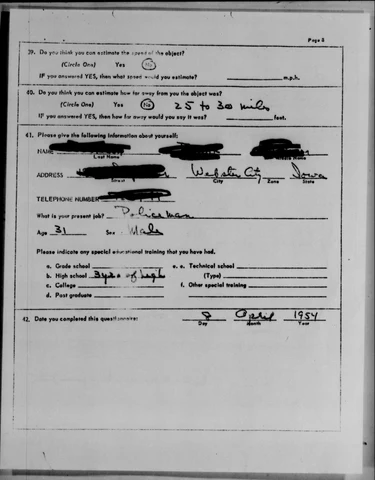 Page 8
39. Do you think you can estimate the speed of the object?
(Circle One) Yes No
IF you answered YES, then what speed would you estimate? m.p.h.
40. Do you think you can estimate how far away from you the object was?
(Circle One) Yes No 25 to 30 miles
IF you answered YES, then how far away would you say it was? feet.
41. Please give the following information about yourself:
NAME
Last Name Middle Name
ADDRESS Webster City Iowa
Street City Zone State
TELEPHONE NUMBER
What is your present job? Policeman
Age 31 Sex Male
Please indicate any special educational training that you have had.
a. Grade school e. Technical school
b. High school 3 yrs of high (Type)
c. College f. Other special training
d. Post graduate
42. Date you completed this questionnaire: 8 April 1954
Day Month Year